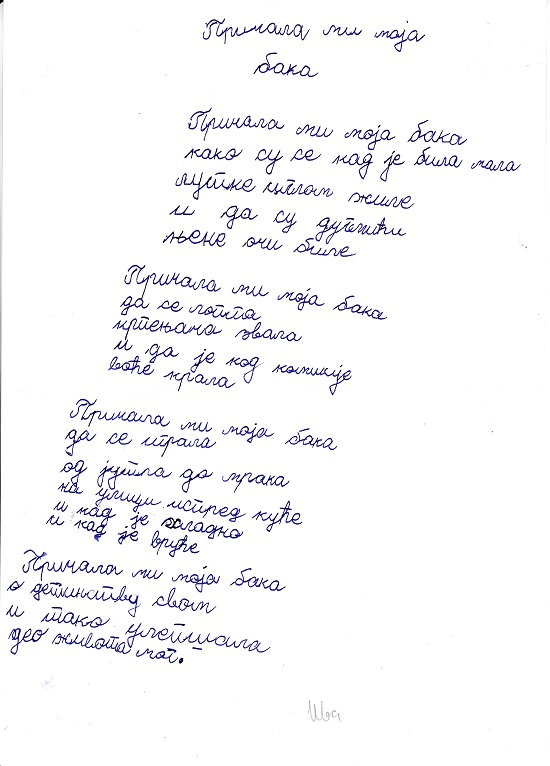 Причала ми моја
бака
Причала ми моја бака
како су се кад је била мала
лутке иглом шиле
и да су дугмићи
њене очи биле
Причала ми моја бака
да се лопта
крпењача звала
и да је код комшије
воће крала
Причала ми моја бака
да се играла
од јутра до мрака
на улици испред куће
и кад је хладно
и кад је вруће
Причала ми моја бака
о детињству свом
и тако улепшала
део живота мог.
Ива